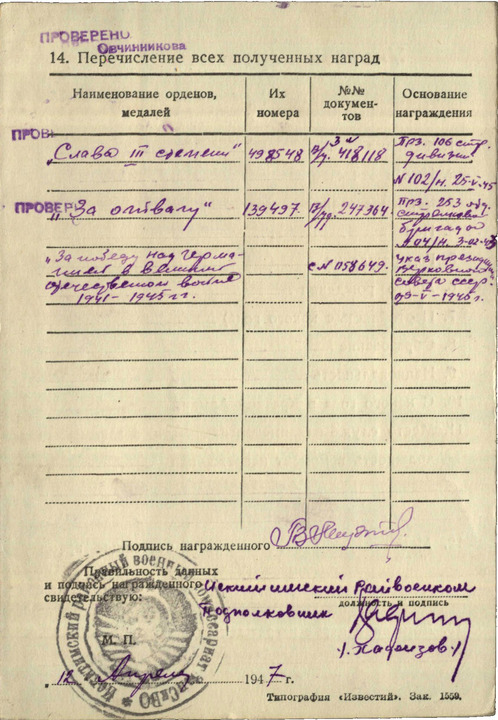 ПРОВЕРЕНО
Овчинникова
14. Перечисление всех полученных наград
Наименование орденов, медалей
Их номера
№№ докумен-тов
Основание награждения
ПРОВЕ
„Слава III степени"
498548
В/у. 418118
Прз. 106 стр.
дивизии
N 102/н. 25-V-45
ПРОВЕРЕ
„За отвагу"
139497.
В/уд. 247364
Прз. 253 отд.
стрелковой
бригады
N 04/н. 3-02-43
„За победу над Герма-
нией в великой
отечественной войне
1941-1945 гг.
с N 058649.
указ президиу
Верховного
Совета СССР.
09-V-1945 г.
Подпись награжденного
Правильность данных
и подпись награжденного
свидетельствую:
райвоенком
должность и подпись
Подполковник
М. П.
„12" Апреля 1947 г.
Типография «Известий». Зак. 1559.